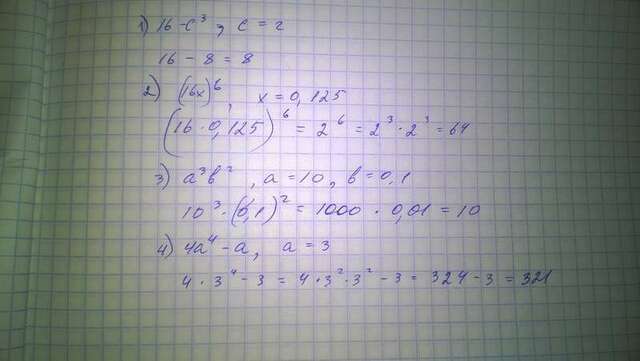 1) 16 - c³, c = 2
16 - 8 = 8
2) (16x)⁶, x = 0,125
(16 · 0,125)⁶ = 2⁶ = 2³ · 2³ = 64
3) a³b², a = 10, b = 0,1
10³ · (0,1)² = 1000 · 0,01 = 10
4) 4a⁴ - a, a = 3
4 · 3⁴ - 3 = 4 · 3² · 3² - 3 = 324 - 3 = 321